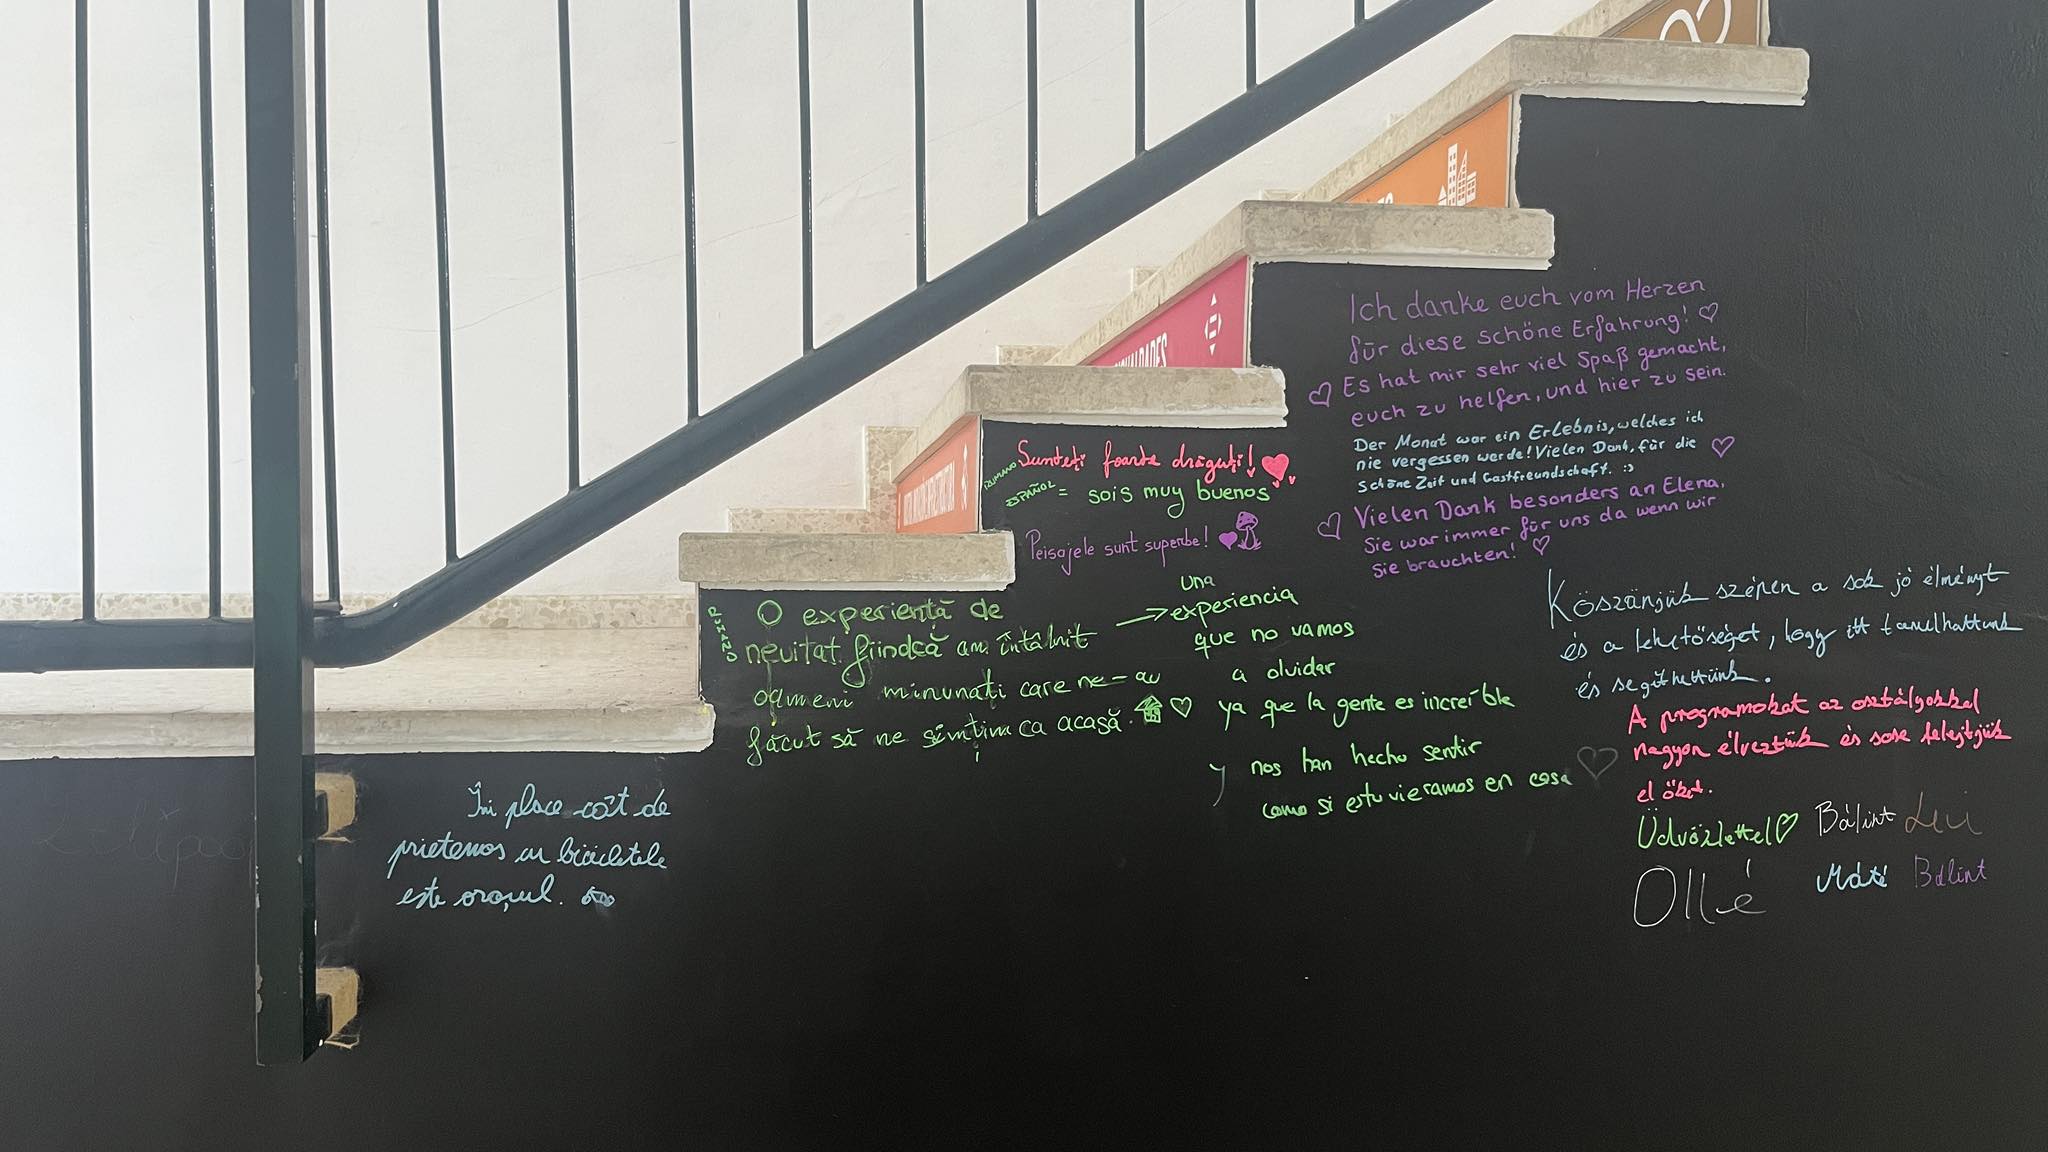 Ich danke euch vom Herzen
für diese schöne Erfahrung!
Es hat mir sehr viel Spaß gemacht,
euch zu helfen, und hier zu sein.
Der Monat war ein Erlebnis, welches ich
nie vergessen werde! Vielen Dank, für die
schöne Zeit und Gastfreundschaft. :)
Vielen Dank besonders an Elena,
Sie war immer für uns da wenn wir
sie brauchten!
RUMANO
Sunteți foarte drăguți!
ESPAÑOL = sois muy buenos
Peisajele sunt superbe!
RUMANO
O experiență de
neuitat fiindcă am întâlnit
oameni minunați care ne-au
făcut să ne simțim ca acasă.
una
experiencia
que no vamos
a olvidar
ya que la gente es increíble
y nos han hecho sentir
como si estuvieramos en casa
Îmi place cât de
prietenos cu bicicletele
este orașul.
Köszönjük szépen a sok jó élményt
és a lehetőséget, hogy itt tanulhattunk
és segíthettünk.
A programokat az osztályokkal
nagyon élveztük és sose felejtjük
el őket.
Üdvözlettel
Bálint
Máté Bálint
Ollé